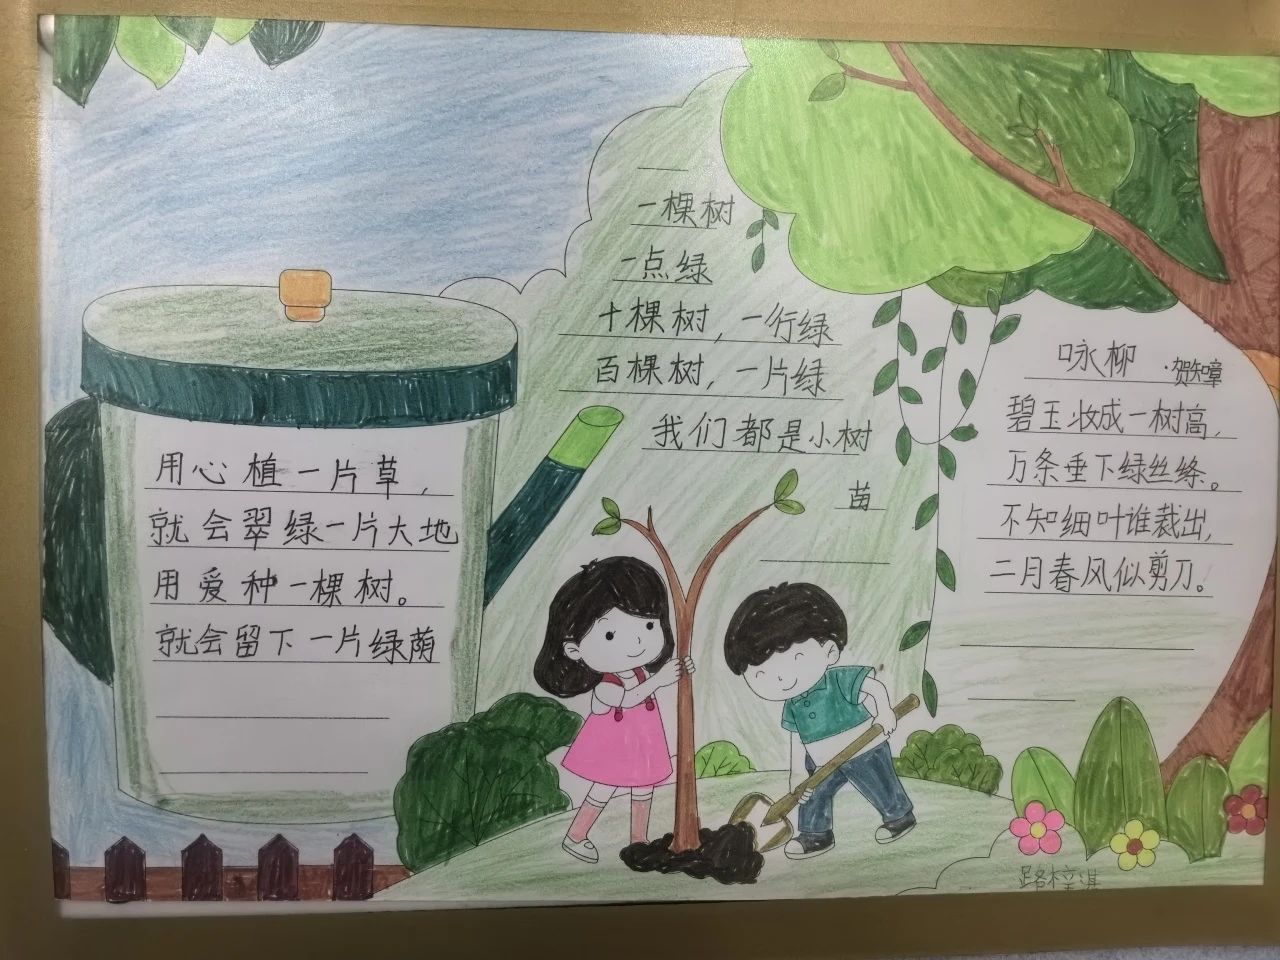 用心植一片草，
就会翠绿一片大地
用爱种一棵树。
就会留下一片绿荫
一棵树
一点绿
十棵树，一行绿
百棵树，一片绿
我们都是小树
苗
咏柳 ·贺知章
碧玉妆成一树高，
万条垂下绿丝绦。
不知细叶谁裁出，
二月春风似剪刀。
路梓淇